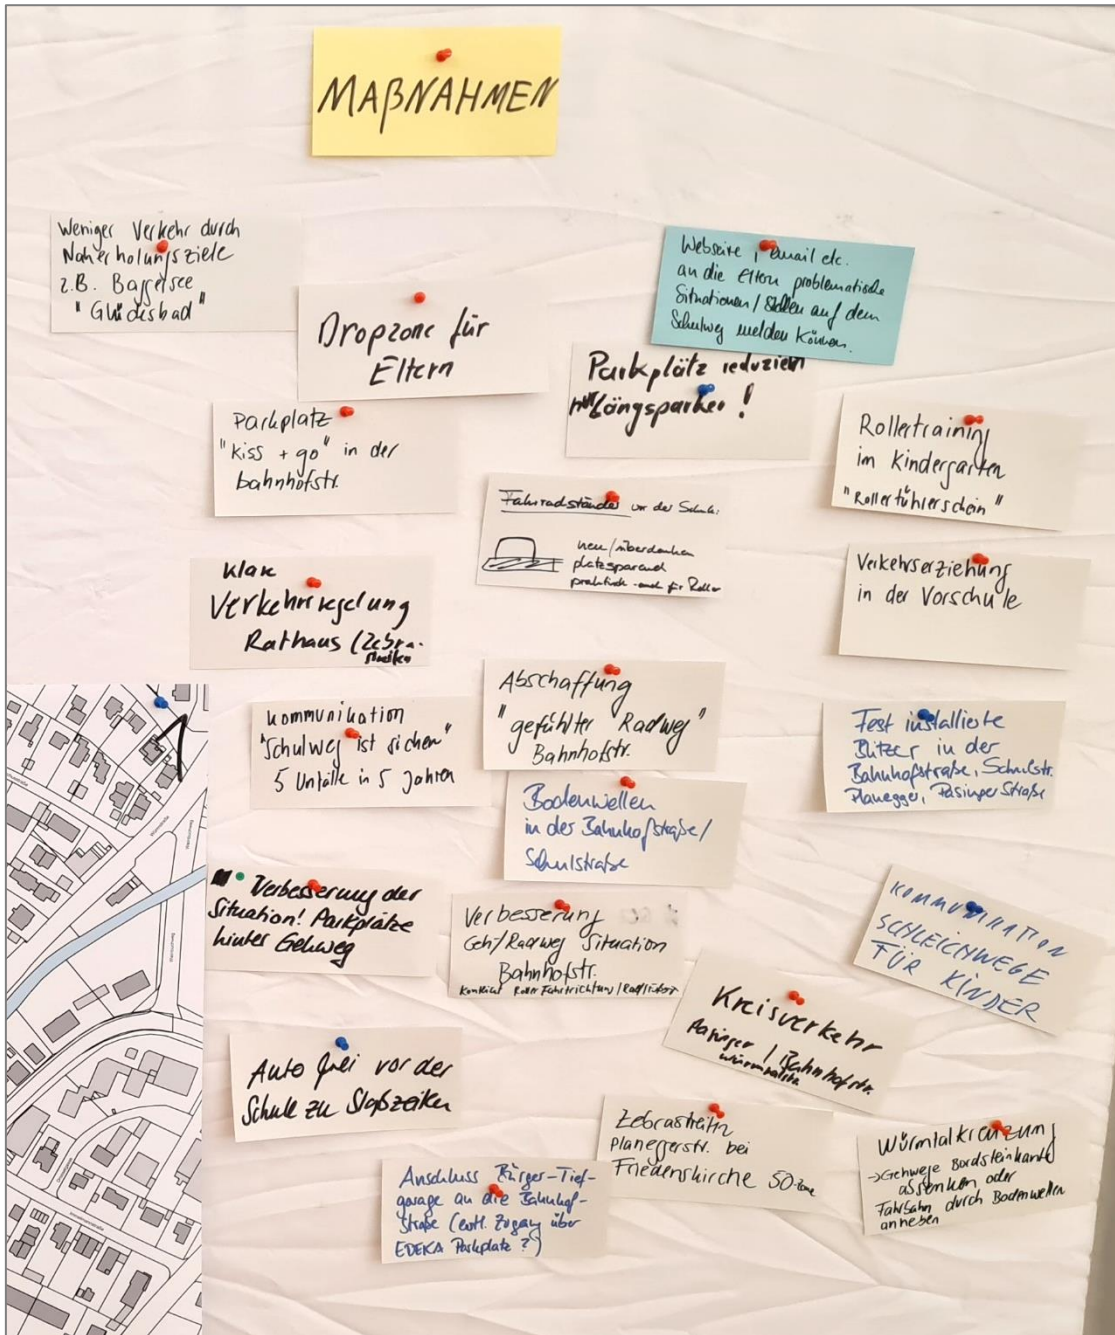 MAßNAHMEN
Weniger Verkehr durch
Naherholungsziele
z.B. Baggersee
"Glücksbad"
Dropzone für
Eltern
Webseite, email etc.
an die Eltern problematische
Situationen/Stellen auf dem
Schulweg melden können.
Parkplätz reduzieren
nur Längsparker!
Parkplatz
"kiss + go" in der
bahnhofstr.
Rollertraining
im Kindergarten
"Rollerführerschein"
Fahrradständer vor der Schule:
neu/überdenken
platzsparend
praktisch - auch für Roller
Klare
Verkehrsregelung
Rathaus (Zebra-
streifen
Verkehrserziehung
in der Vorschule
Abschaffung
"gefühlter Radweg"
Bahnhofstr.
Kommunikation
"Schulweg ist sicher"
5 Unfälle in 5 Jahren
Fest installierte
Blitzer in der
Bahnhofstraße, Schulstr.
Planegger, Pasinger Straße
Bodenwellen
in der Bahnhofstraße/
Schulstraße
Verbesserung der
Situation! Parkplätze
hinter Gehweg
Verbesserung
Geh/Radweg Situation
Bahnhofstr.
Roller Fahrtrichtung
KOMMUNIKATION
SCHLEICHWEGE
FÜR KINDER
Kreisverkehr
Pasinger / Bahnhofstr.
Auto frei vor der
Schule zu Stoßzeiten
Zebrastreifen
Planeggerstr. bei
Friedenskirche 50-Zone
Würmtalkreuzung
→ Gehwege Bordsteinkante
absenken oder
Fahrbahn durch Bodenwellen
anheben
Anschluss Bürger-Tief-
garage an die Bahnhof-
straße (evtl. Zugang über
EDEKA Parkplatz?)